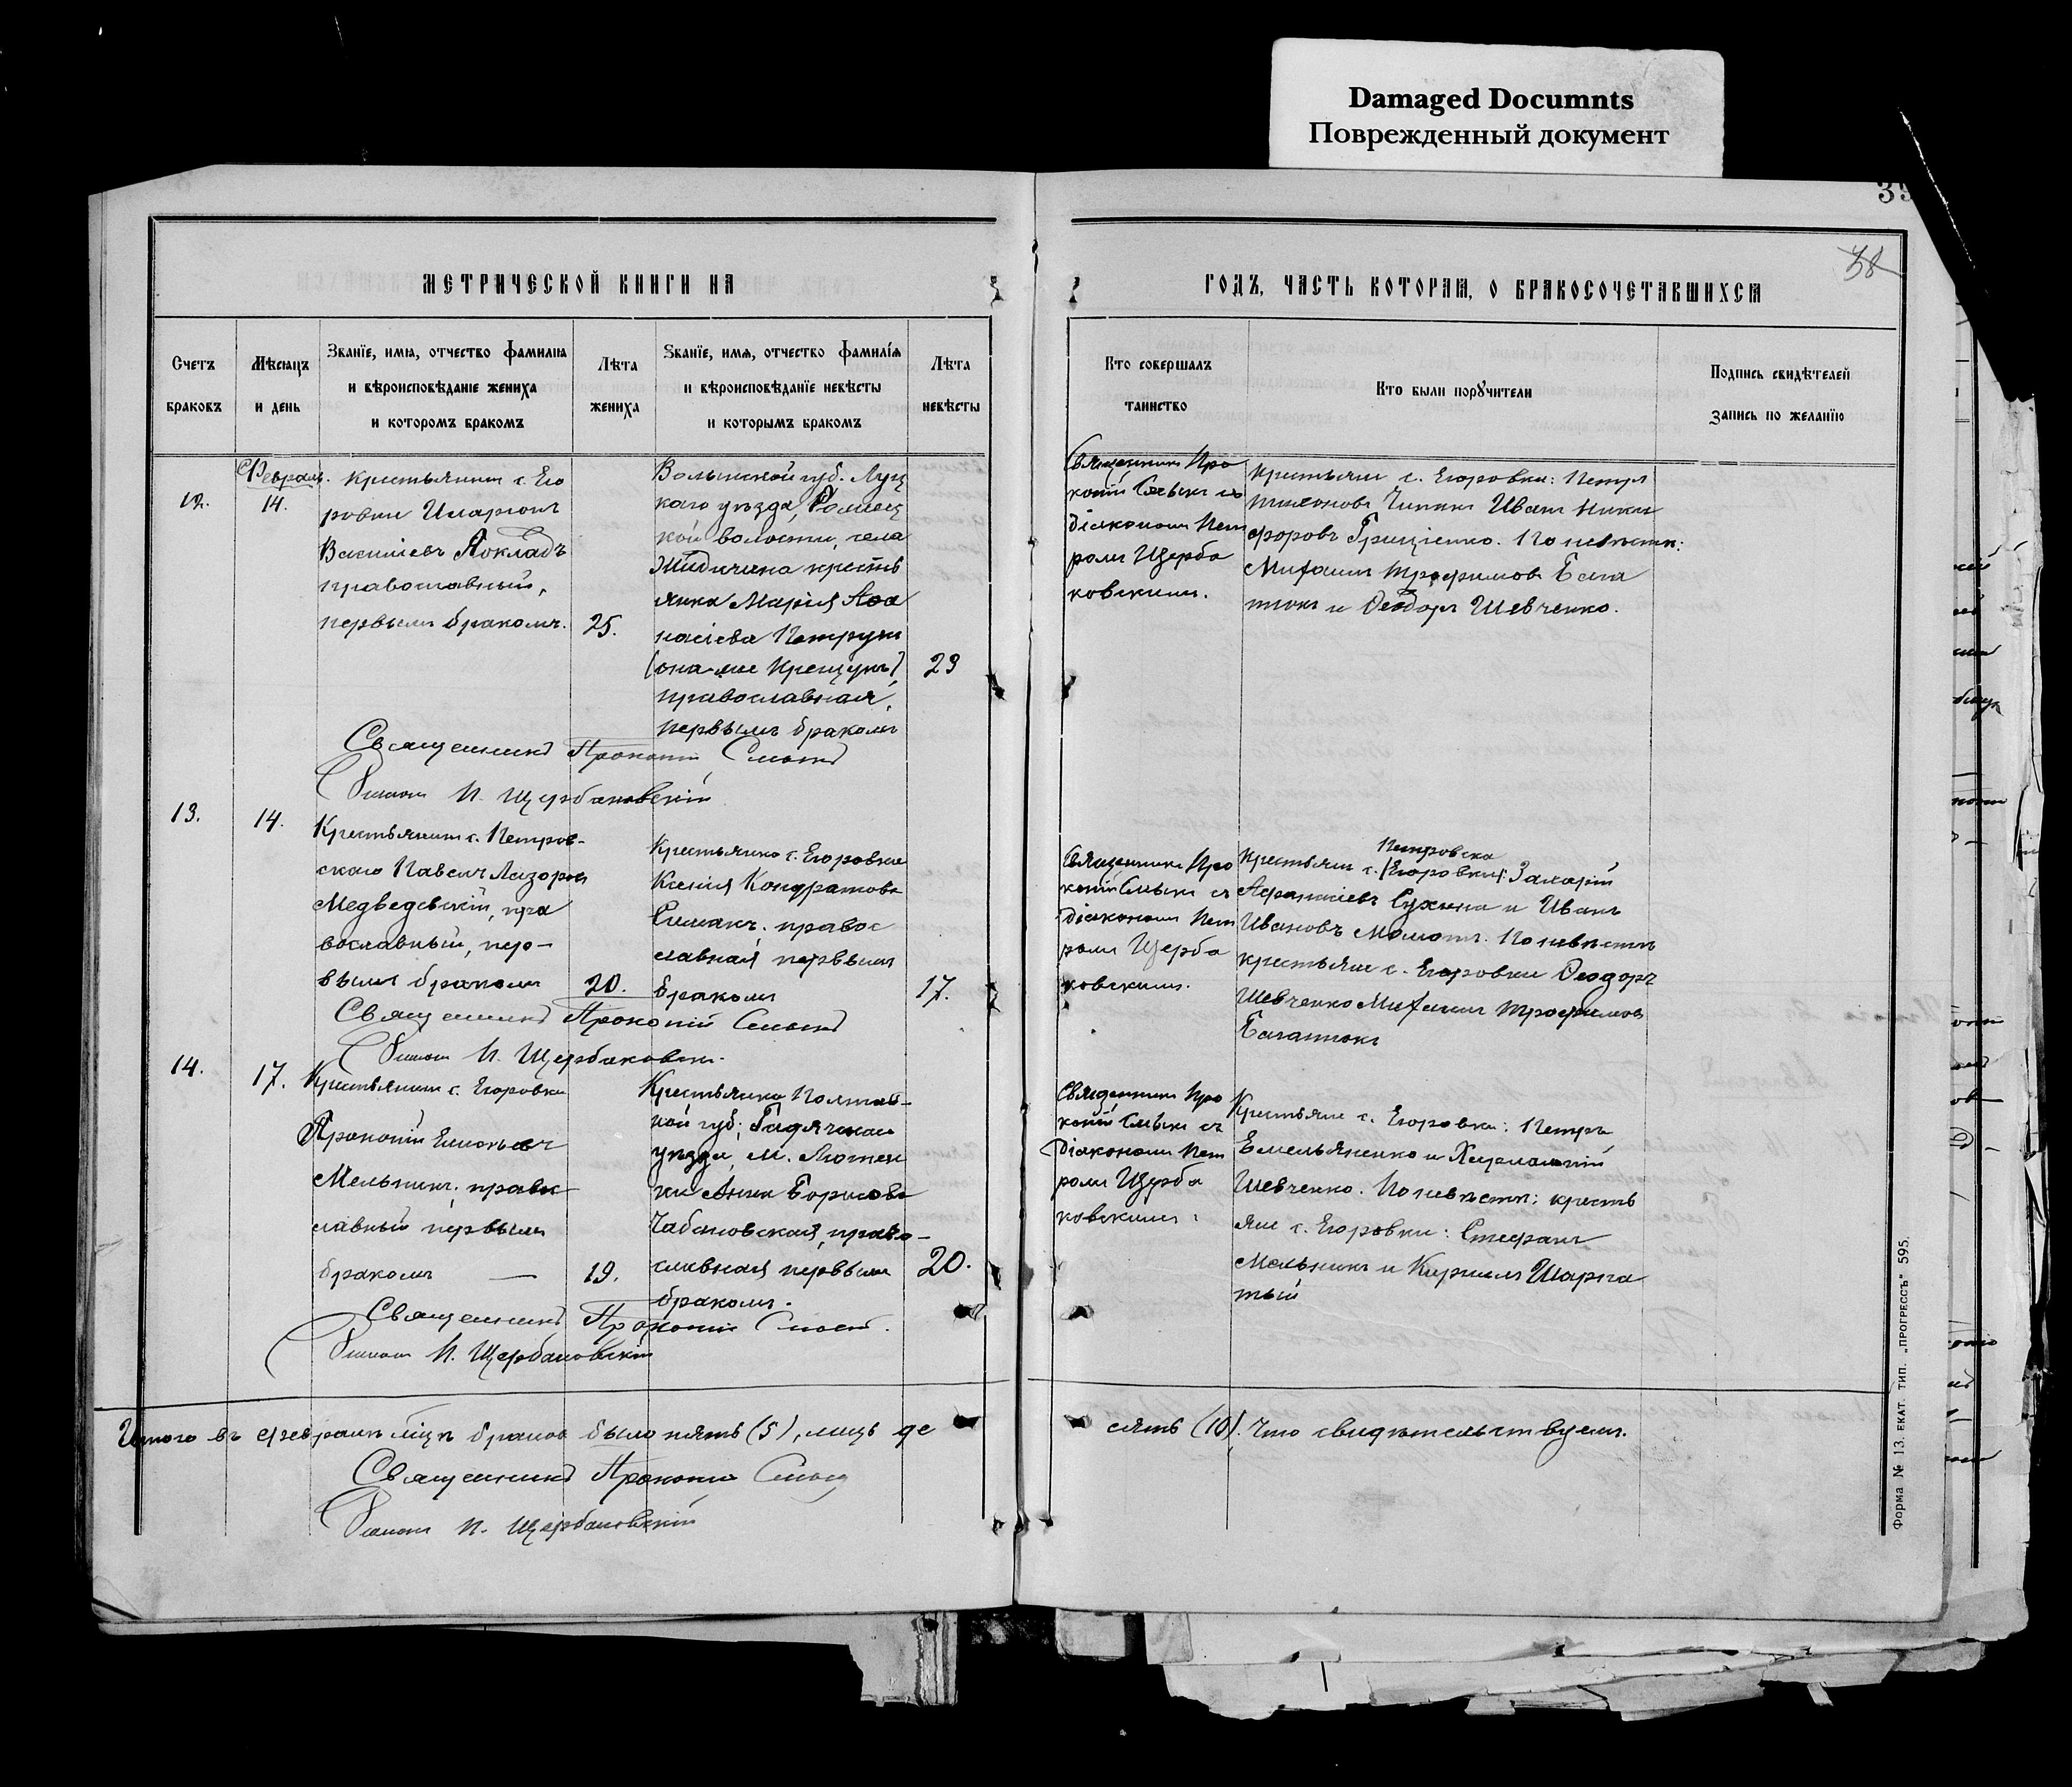 Damaged Documnts
Поврежденный документ
35
38
МЕТРИЧЕСКОЙ КНИГИ НА
ГОДЪ, ЧАСТЬ ВТОРАЯ, О БРАКОСОЧЕТАВШИХСЯ
Счетъ браковъ
Мѣсяцъ и день
Званїе, имя, отчество фамилїя
и вѣроисповѣданїе жениха
и которомъ бракомъ
Лѣта жениха
Званїе, имя, отчество фамилїя
и вѣроисповѣданїе невѣсты
и которымъ бракомъ
Лѣта невѣсты
Кто совершалъ таинство
Кто были порꙋчители
Подпись свидѣтелей
запись по желанїю
12.
Февраль.
14.
Крестьянинъ с. Его
ровки Иларіонъ
Василіевъ Покладъ
православный,
первымъ бракомъ.
25.
Волынской губ. Луц
каго уѣзда,
кой волости, села
Жидичина кресть
янка Марія Аѳа
насіева Петрукъ
(она-же Крещукъ)
православная,
первымъ бракомъ
23
Священникъ Про
копій Смыкъ съ
діакономъ Пет
ромъ Щерба
ковскимъ.
Крестьяне с. Егоровки: Петръ
Тихоновъ Иванъ Ники
форовъ Грищенко. По невѣстѣ:
Михаилъ Трофимовъ Бага
тюкъ и Ѳеодоръ Шевченко.
Священникъ Прокопій Смыкъ
Діаконъ П. Щербаковскій
13.
14.
Крестьянинъ с. Петров-
скаго Павелъ Лазоревъ
Медведевскій, пра
вославный, пер-
вымъ бракомъ
20.
Крестьянка с. Егоровки
Ксенія Кондратова
Симакъ, правос
лавная первымъ
бракомъ
17.
Священникъ Про
копій Смыкъ съ
діакономъ Пет
ромъ Щерба
ковскимъ.
Петровска
Крестьяне с. (Егоровки): Захарій
Афанасіевъ Сухина и Иванъ
Ивановъ Момотъ. По невѣстѣ
крестьяне с. Егоровки Ѳеодоръ
Шевченко Михаилъ Трофимовъ
Багатюкъ
Священникъ Прокопій Смыкъ
Діаконъ П. Щербаковскій
14.
17.
Крестьянинъ с. Егоровки
Прокопій
Мельникъ, право
славный первымъ
бракомъ —
19.
Крестьянка Полтав-
кой губ; Гадячскаго
уѣзда, М. Лютен
ки Анна Борисова
Чабановская, право-
славная первымъ
бракомъ.
20.
Священникъ Про
копій Смыкъ съ
Діакономъ Пет
ромъ Щерба
ковскимъ.
Крестьяне с. Егоровки: Петръ
Емельяненко и
Шевченко. По невѣстѣ: кресть
яне с. Егоровки: Стефанъ
Мельникъ и Кириллъ Шарга
тый
Священникъ Прокопій Смыкъ.
Діаконъ П. Щербаковскій
Итого въ февралѣ м҃цѣ браковъ было пять (5), лицъ де
сять (10). Что свидѣтельствуемъ.
Священникъ Прокопій Смыкъ
Діаконъ П. Щербаковскій
Форма № 13. ЕКАТ. ТИП. „ПРОГРЕССЪ“ 595.